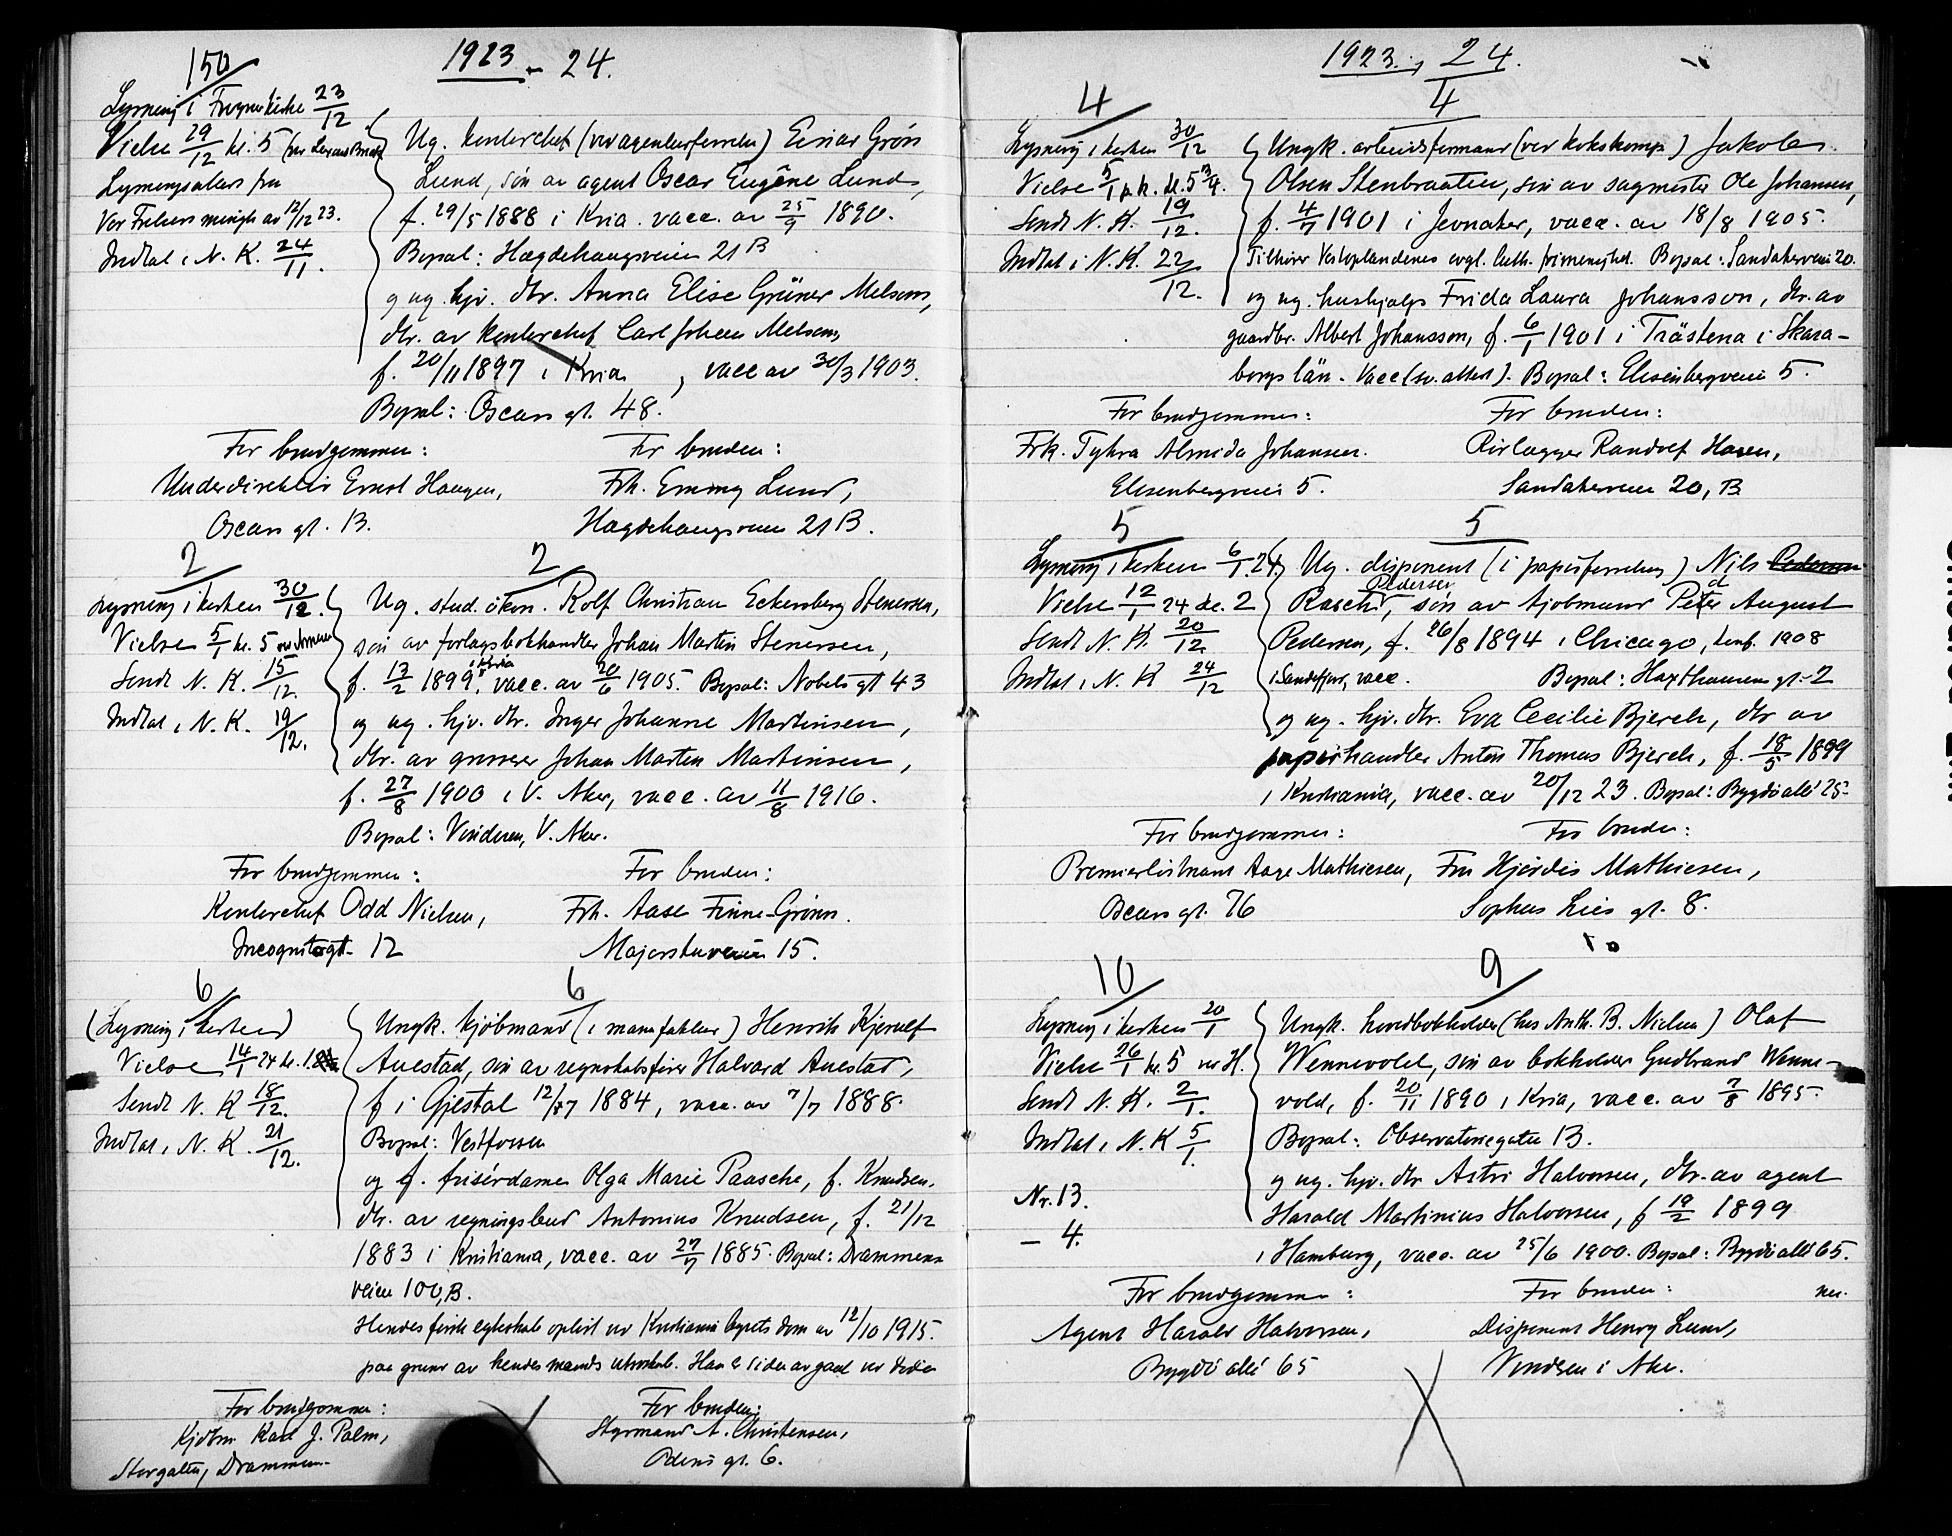 1923 - 24.
150
Lysning i Frognerkirke 23/12
Vielse 29/12 kl. 5
Lysningsattest fra
Vor Frelsers mengh. av 12/12 23.
Indtat i N. K. 24/11.
Ug. kontorchef (ved agenturforretn.) Einar Grøn
Lund, søn av agent Oscar Eugêne Lund,
f. 29/5 1888 i Kria. vacc. av 25/9 1890.
Bopæl: Hægdehaugsveien 21 B
og ug. hjv. dtr. Anna Elise Grüner Melsom,
dtr. av kontorchef Carl Johan Melsom,
f. 20/11 1897 i Kria, vacc av 30/3 1903.
Bopæl: Oscars gt. 48.
For brudgommen: For bruden:
Underdirektør Ernst Haugen, Frk. Emmy Lund,
Oscars gt. 13. Hægdehaugsveien 21 B.
2 2
Lysning i kirken 30/12.
Vielse 5/1 kl. 5
Sendt N. K. 15/12.
Indtat i N. K. 19/12.
Ug. stud. økon. Rolf Christian Eckersberg Stenersen,
søn av forlagsbokhandler Johan Martin Stenersen,
f. 13/2 1899 i Kria, vacc. av 20/6 1905. Bopæl: Nobels gt 43
og ug. hjv. dtr. Inger Johanne Martinsen,
dtr. av grosserer Johan Marten Martinsen,
f. 27/8 1900 i V. Aker, vacc. av 11/8 1916.
Bopæl: Vinderen, V. Aker.
For brudgommen: For bruden:
Kontorchef Odd Nielsen, Frk. Aase Finne-Grønn.
Incognitogt. 12 Majorstuveien 15.
6 6
(Lysning i kirken)
Vielse 14/1 24 kl. 1.
Sendt N. K 18/12.
Indtat i N. K. 21/12.
Ungk. kjøbmand (i manufaktur) Henrik Kjerulf
Auestad, søn av regnskabsfører Halvard Auestad,
f i Gjestal 12/7 1884, vacc. av 7/7 1888.
Bopæl: Vestfossen
og f. frisérdame Olga Marie Paasche, f. Knudsen,
dtr. av regningsbud Antonius Knudsen, f. 21/12
1883 i Kristiania, vacc. av 27/7 1885. Bopæl: Drammens
veien 100, B.
Hendes første egteskab opløst ved Kristiania byrets dom av 12/10 1915.
paa grund av hendes mands utroskab. Han er siden avgaat ved døden
For brudgommen: For bruden:
Kjøbm. Karl J. Palm, Styrmand A. Christensen,
Storgaten, Drammen. Odins gt. 6.
1923., 24.
4 4
Lysning i kirken 30/12
Vielse 5/1 kl. 5 3/4.
Sendt N. K. 19/12.
Indtat i N. K. 22/12.
Ungk. arbeidsformand (ved kokskomp.) Jakob
Olsen Stenbraaten, søn av sagmester Ole Johansen,
f. 4/7 1901 i Jevnaker, vacc. av 18/8 1905.
Tilhører Vestoplandenes evgl. luth. frimenighet. Bopæl: Sandakerveien 20.
og ug. hushjælp Frida Laura Johansson, dtr. av
gaardbr. Albert Johansson, f. 6/1 1901 i Trästena i Skara-
borgs län. Vacc (sv. attest). Bopæl: Elisenbergveien 5.
For brudgommen: For bruden:
Frk. Tykra Almida Johansen. Rørlægger Randolf Hagen,
Elisenbergveien 5. Sandakerveien 20, B
5 5
Lysning i kirken 6/1 24.
Vielse 12/1 24 kl. 2
Sendt N. K. 20/12
Indtat i N. K 24/12
Ug. disponent (i papirforretning) Nils Pedersen
Pedersen
Rasch, søn av sjøbmand Peder August
Pedersen, f. 26/8 1894 i Chicago, konf. 1908
i Sandefjord, vacc. Bopæl: Haxthausens gt. 2
og ug. hjv. dtr. Eva Cecilie Bjerch, dtr av
papirhandler Anton Thomas Bjerch, f. 18/5 1899
i Kristiania, vacc. av 20/12 23. Bopæl: Bygdø allé 25.
For brudgommen: For bruden:
Premierløitnant Aage Mathiesen, Fru Hjørdis Mathiesen,
Oscars gt. 76 Sophus Lies gt. 8.
10
10 9
Lysning i kirken 20/1
Vielse 26/1 kl. 5 ved H.
Sendt N. K. 2/1.
Indtat i N. K 5/1.
Nr. 13.
- 4.
Ungk. hovedbokholder (hos Anth. B. Nielsen) Olaf
Wennevold, søn av bokholder Gudbrand Wenne-
vold, f. 20/11 1890 i Kria, vacc. av 7/8 1895.
Bopæl: Observatoriegaten 13.
og ug. hjv. dtr Astri Halvorsen, dtr. av agent
Harald Martinius Halvorsen, f 19/2 1899
i Hamburg, vacc. av 25/6 1900. Bopæl: Bygdø allé 65.
For brudgommen: For bruden:
Agent Harald Halvorsen, Disponent Henry Lund,
Bygdø allé 65 Vindern i Aker.